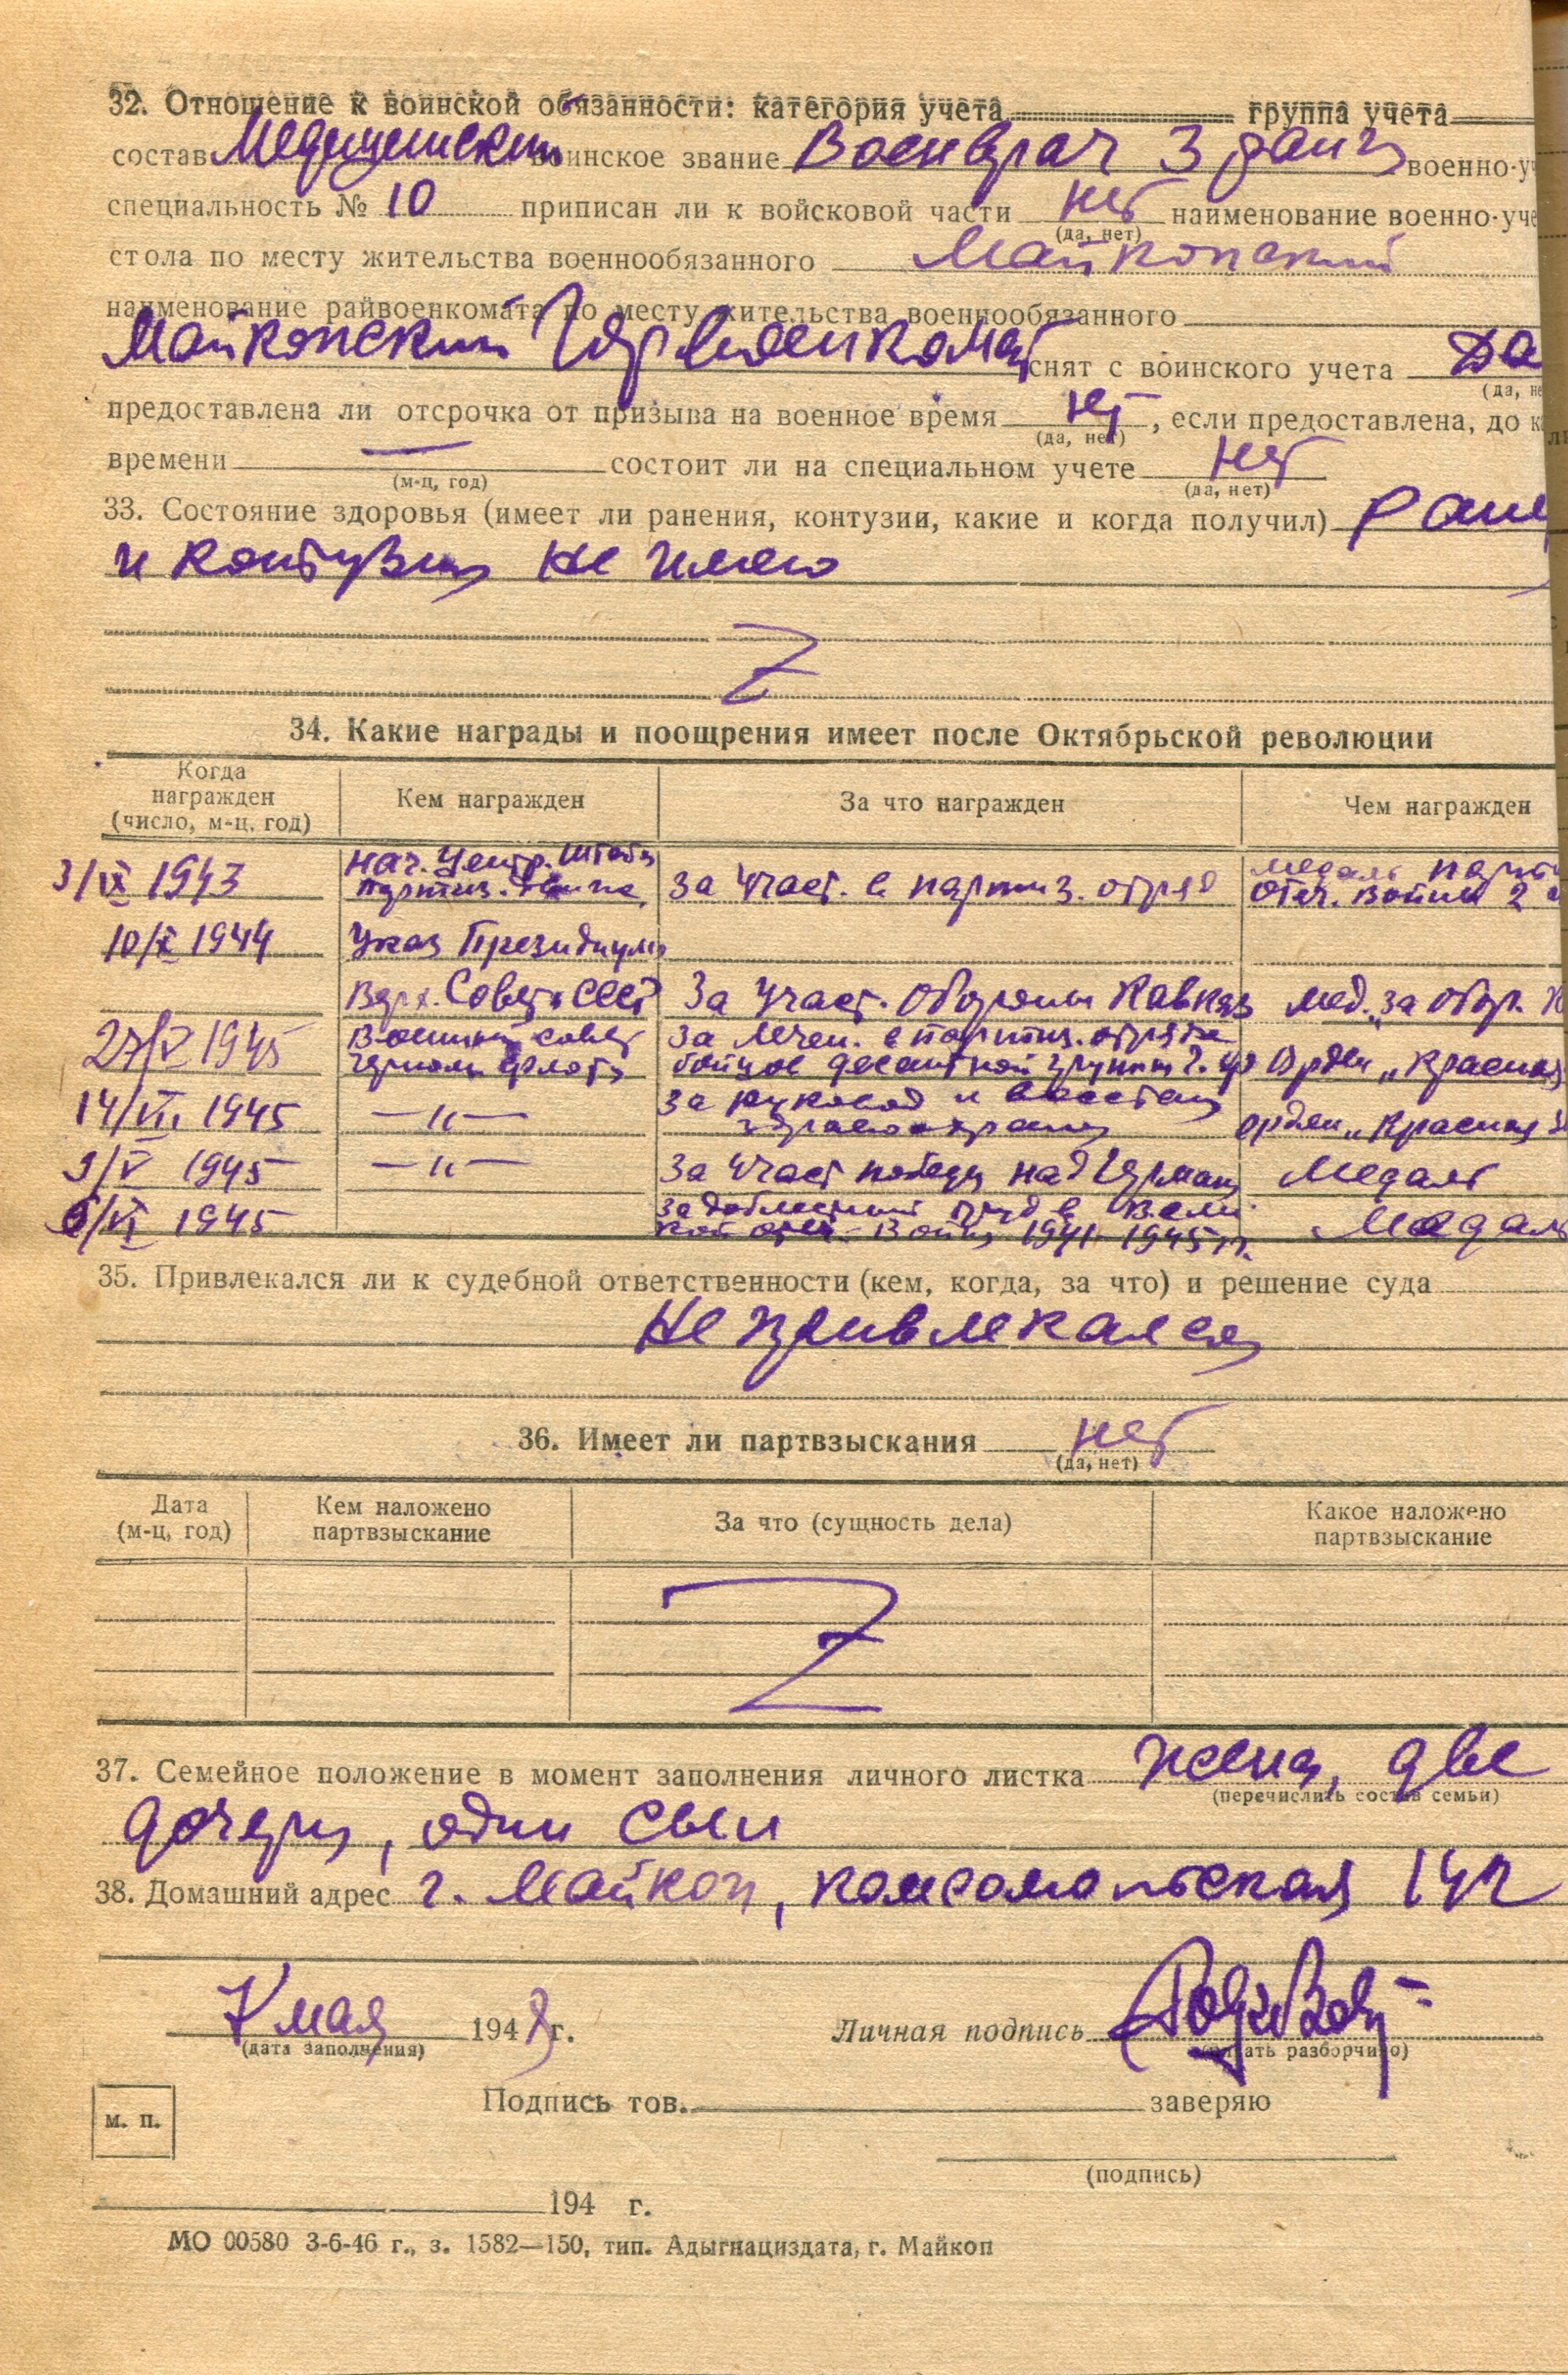 32. Отношение к воинской обязанности: категория учета группа учета
состав Медицинский воинское звание Военврач 3 ранга военно-уч
специальность № 10 приписан ли к войсковой части нет наименование военно-уче
(да, нет)
стола по месту жительства военнообязанного Майкопский
наименование райвоенкомата по месту жительства военнообязанного
Майкопский Горвоенкомат снят с воинского учета Да
(да, не
предоставлена ли отсрочка от призыва на военное время нет, если предоставлена, до к
(да, нет)
времени — состоит ли на специальном учете нет
(м-ц, год) (да, нет)
33. Состояние здоровья (имеет ли ранения, контузии, какие и когда получил) ран
и контузии не имею
34. Какие награды и поощрения имеет после Октябрьской революции
Когда награжден (число, м-ц, год) Кем награжден За что награжден Чем награжден
3/IX 1943 Нач. Центр. Штаба За участ. в партиз. отряд медаль парти
партиз. движ. Отеч. войны 2
10/X 1944 Указ Президиума
Верх. Совета СССР За участ. Обороны Кавказа мед. „за обор. К
27/V 1945 Военный совет За лечен. в партиз. отряде
Черном. флота бойцов десантной группы Ч. ф Орден „Красная
14/VII 1945 —〃— за руковод и восстан
здравоохран орден „Красная З
9/V 1945 —〃— За участ победы над Герман Медаль
6/VI 1945 За доблестный труд в Вели
кой отеч. войне 1941-1945 гг. Медаль
35. Привлекался ли к судебной ответственности (кем, когда, за что) и решение суда
Не привлекался
36. Имеет ли партвзыскания нет
(да, нет)
Дата (м-ц, год) Кем наложено партвзыскание За что (сущность дела) Какое наложено партвзыскание
37. Семейное положение в момент заполнения личного листка жена, две
(перечислить состав семьи)
дочери, один сын
38. Домашний адрес г. Майкоп, комсомольская
7 мая 1948 г. Личная подпись
(дата заполнения) (писать разборчиво)
Подпись тов. заверяю
м. п.
(подпись)
194 г.
МО 00580 3-6-46 г., з. 1582—150, тип. Адыгнациздата, г. Майкоп